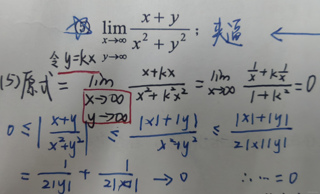 lim x→∞ y→∞ x+y / x²+y² ;
令 y=kx
(5) 原式 = lim x→∞ y→∞ x+kx / x²+k²x² = lim x→∞ (1/x + k 1/x) / 1+k² = 0
0 ≤ |x+y / x²+y²| ≤ |x|+|y| / x²+y² ≤ |x|+|y| / 2|x||y|
= 1/2|y| + 1/2|x| → 0 ∴ … = 0